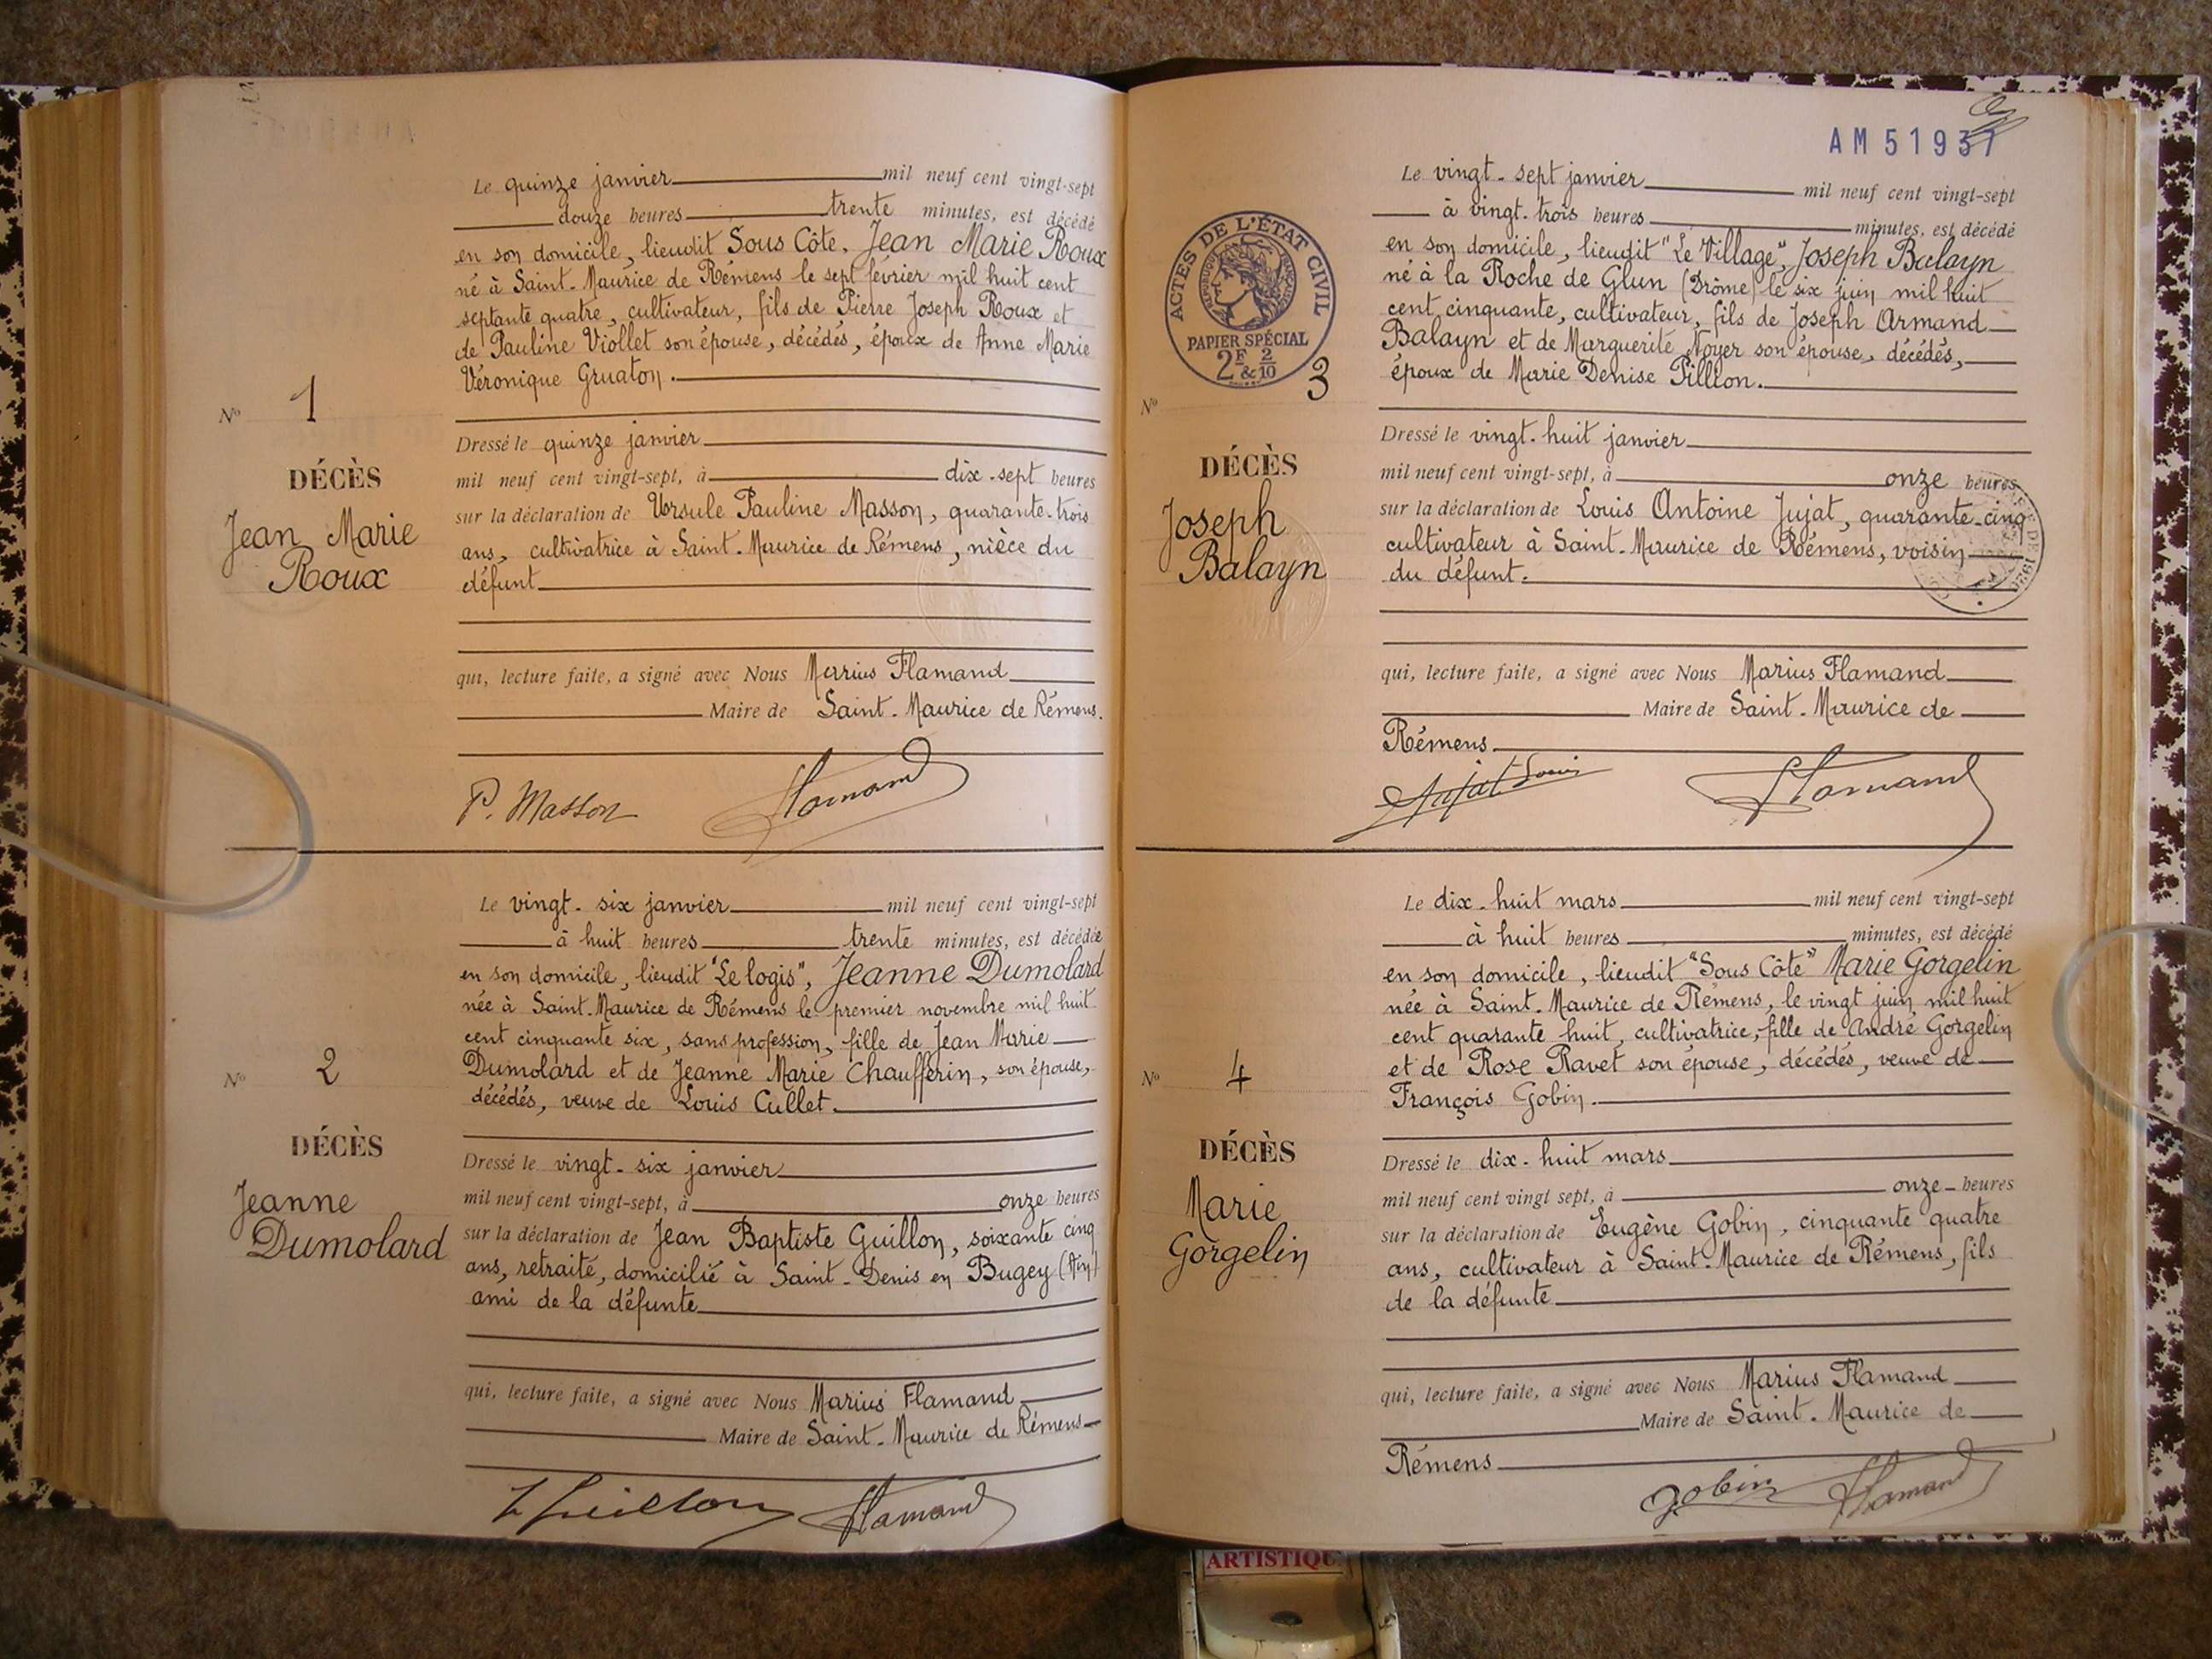 Le quinze janvier mil neuf cent vingt-sept
douze heures trente minutes, est décédé
en son domicile, lieudit Sous Côte, Jean Marie Roux
né à Saint-Maurice de Rémens le sept février mil huit cent
septante quatre, cultivateur, fils de Pierre Joseph Roux et
de Pauline Viollet son épouse, décédés, époux de Anne Marie
Véronique Gruaton.
N° 1
Dressé le quinze janvier
DÉCÈS
mil neuf cent vingt-sept, à dix-sept heures
Jean Marie
Roux
sur la déclaration de Ursule Pauline Masson, quarante-trois
ans, cultivatrice à Saint-Maurice de Rémens, nièce du
défunt
qui, lecture faite, a signé avec Nous Marius Flamand
Maire de Saint-Maurice de Rémens.
P. Masson Flamand
Le vingt-six janvier mil neuf cent vingt-sept
à huit heures trente minutes, est décédée
en son domicile, lieudit "Le logis", Jeanne Dumolard
née à Saint-Maurice de Rémens le premier novembre mil huit
cent cinquante six, sans profession, fille de Jean Marie
Dumolard et de Jeanne Marie Chaufferin, son épouse,
décédés, veuve de Louis Cullet.
N° 2
DÉCÈS
Jeanne
Dumolard
Dressé le vingt-six janvier
mil neuf cent vingt-sept, à onze heures
sur la déclaration de Jean Baptiste Guillon, soixante cinq
ans, retraité, domicilié à Saint-Denis en Bugey (Ain)
ami de la défunte
qui, lecture faite, a signé avec Nous Marius Flamand
Maire de Saint-Maurice de Rémens
Guillon Flamand
AM 51937
ACTES DE L'ÉTAT CIVIL
RÉPUBLIQUE FRANÇAISE
PAPIER SPÉCIAL
2F & 2/10
Le vingt-sept janvier mil neuf cent vingt-sept
à vingt-trois heures minutes, est décédé
en son domicile, lieudit "Le Village", Joseph Balayn
né à la Roche de Glun (Drôme) le six juin mil huit
cent cinquante, cultivateur, fils de Joseph Armand
Balayn et de Marguerite Noyer son épouse, décédés,
époux de Marie Denise Pillion.
N° 3
DÉCÈS
Joseph
Balayn
Dressé le vingt-huit janvier
mil neuf cent vingt-sept, à onze heures
sur la déclaration de Louis Antoine Jujat, quarante-cinq
cultivateur à Saint-Maurice de Rémens, voisin
du défunt.
qui, lecture faite, a signé avec Nous Marius Flamand
Maire de Saint-Maurice de
Rémens
Jujat Louis Flamand
Le dix-huit mars mil neuf cent vingt-sept
à huit heures minutes, est décédé
en son domicile, lieudit "Sous Côte" Marie Gorgelin
née à Saint-Maurice de Rémens, le vingt juin mil huit
cent quarante huit, cultivatrice, fille de André Gorgelin
et de Rose Ravet son épouse, décédés, veuve de
François Gobin.
N° 4
DÉCÈS
Marie
Gorgelin
Dressé le dix-huit mars
mil neuf cent vingt sept, à onze heures
sur la déclaration de Eugène Gobin, cinquante quatre
ans, cultivateur à Saint-Maurice de Rémens, fils
de la défunte
qui, lecture faite, a signé avec Nous Marius Flamand
Maire de Saint-Maurice de
Rémens
Gobin Flamand
ARTISTIQU